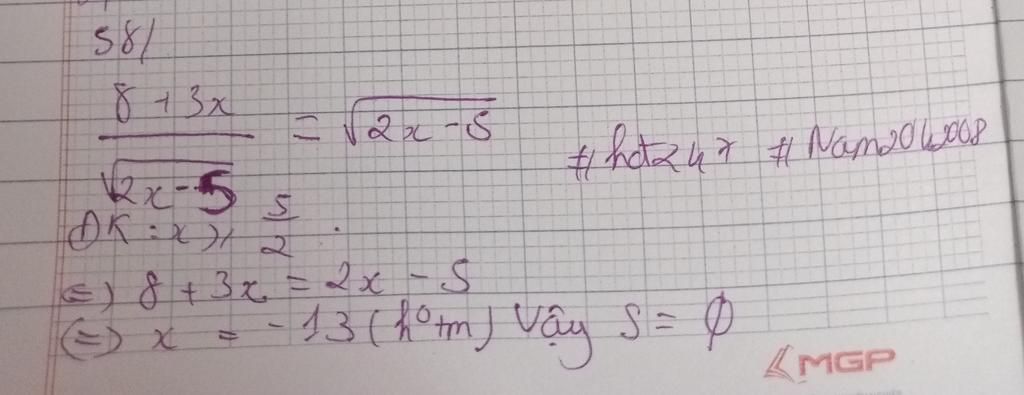 58/
8 + 3x / √2x - 5 = √2x - 5
#hdt24 #Nam2042008
ĐK : x ≥ 5/2.
<=> 8 + 3x = 2x - 5
(=) x = -13 (hotm) Vậy S = ∅
MGP